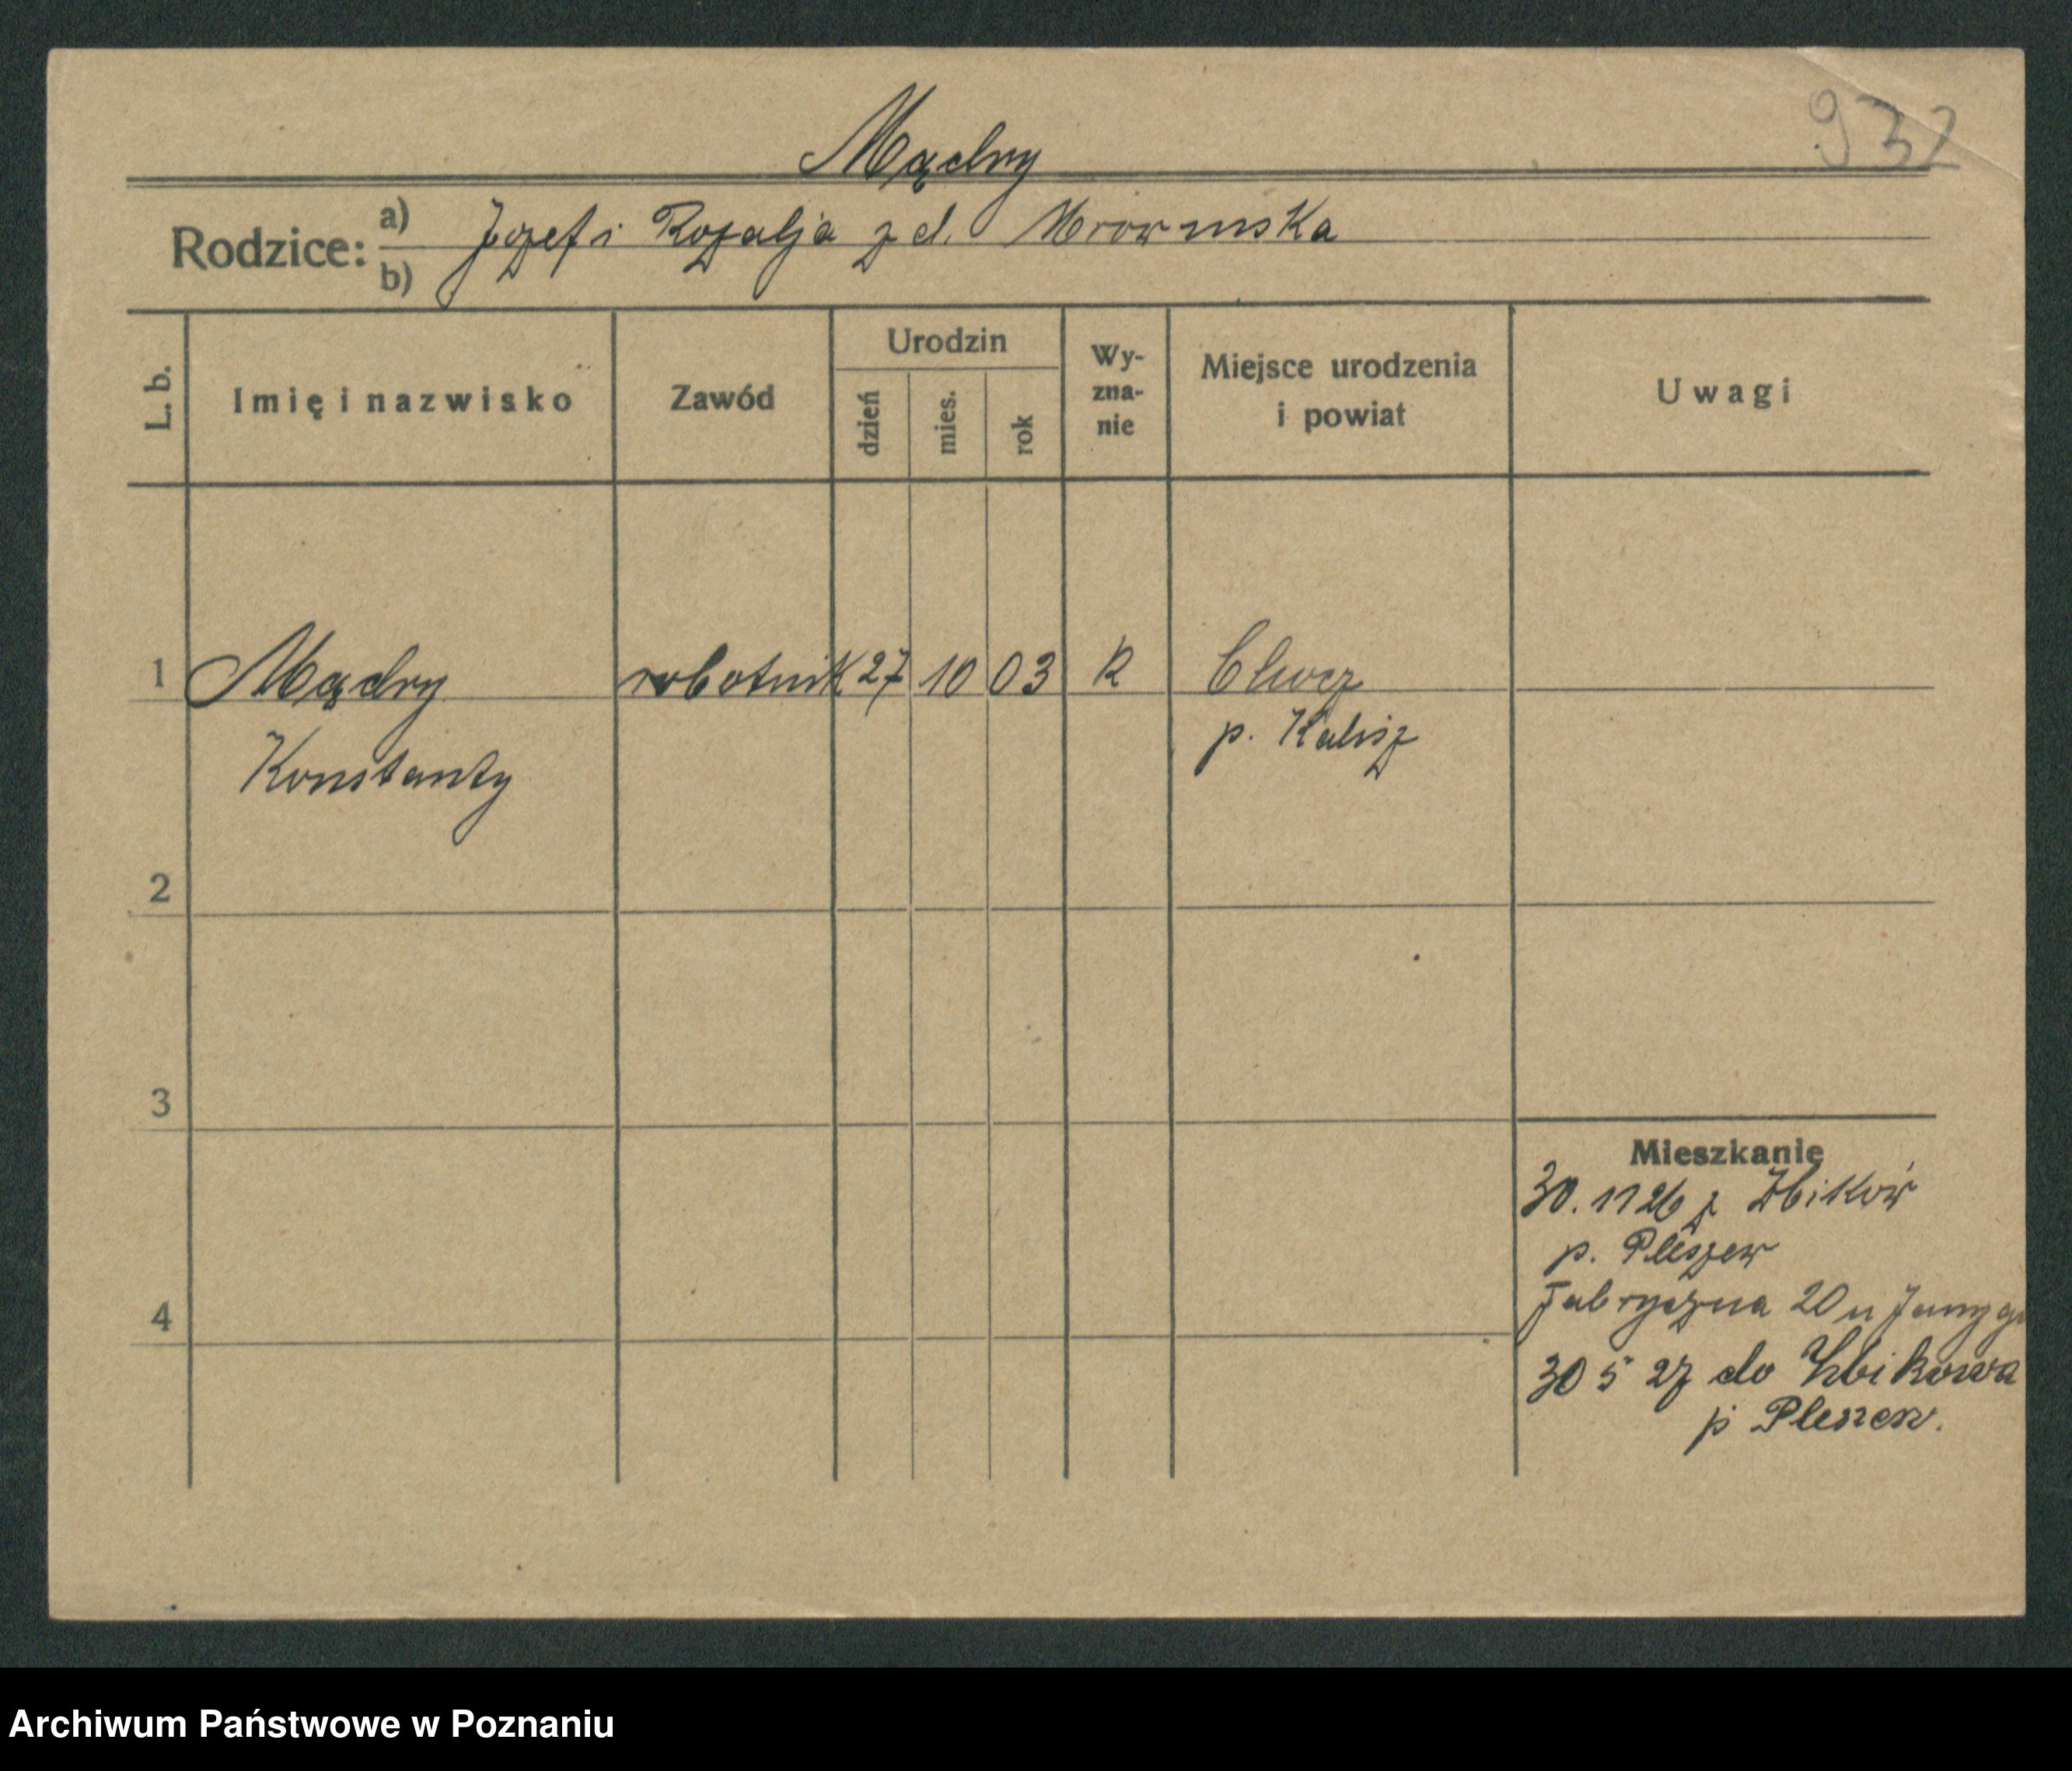 932
Mądry
Rodzice: a) Józef i Rozalja z d. Mrowinska
b)
L. b. Imię i nazwisko Zawód Urodzin dzień mies. rok Wy-zna-nie Miejsce urodzenia i powiat Uwagi
1 Mądry robotnik 27 10 03 R Chocz
Konstanty p. Kalisz
2
3
Mieszkanie
30. 11 26 z Żbików
p. Pleszew
4 Fabryczna 20 u
30 5 27 do Żbikowa
p Pleszew.
Archiwum Państwowe w Poznaniu